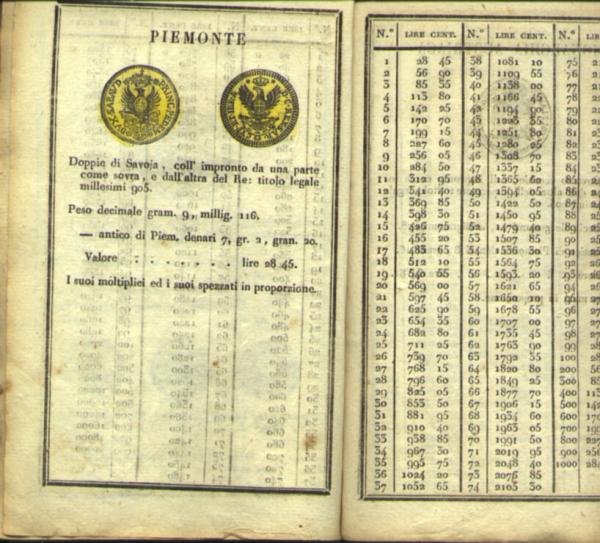 PIEMONTE
Doppie di Savoja, coll' impronto da una parte
come sovra, e dall'altra del Re: titolo legale
millesimi 905.
Peso decimale gram. 9, millig. 116.
— antico di Piem. denari 7, gr. 2, gran. 20.
Valore . . . . . . . lire 28 45.
I suoi moltiplici ed i suoi spezzati in proporzione.
N.° LIRE CENT. N.° LIRE CENT. N.° LIRE
1 28 45 38 1081 10 75
2 56 90 39 1109 55 76
3 85 35 40 1138 00 77
4 113 80 41 1166 45 78
5 142 25 42 1194 90 79
6 170 70 43 1223 35 80
7 199 15 44 1251 80 81
8 227 60 45 1280 25 82
9 256 05 46 1308 70 83
10 284 50 47 1337 15 84
11 312 95 48 1365 60 85
12 341 40 49 1394 05 86
13 369 85 50 1422 50 87
14 398 30 51 1450 95 88
15 426 75 52 1479 40 89
16 455 20 53 1507 85 90
17 483 65 54 1536 30 91
18 512 10 55 1564 75 92
19 540 55 56 1593 20 93
20 569 00 57 1621 65 94
21 597 45 58 1650 10 95
22 625 90 59 1678 55 96
23 654 35 60 1707 00 97
24 682 80 61 1735 45 98
25 711 25 62 1763 90 99
26 739 70 63 1792 35 100
27 768 15 64 1820 80 200
28 796 60 65 1849 25 300
29 825 05 66 1877 70 400
30 853 50 67 1906 15 500
31 881 95 68 1934 60 600
32 910 40 69 1963 05 700
33 938 85 70 1991 50 800
34 967 30 71 2019 95 900
35 995 75 72 2048 40 1000
36 1024 20 73 2076 85
37 1052 65 74 2105 30